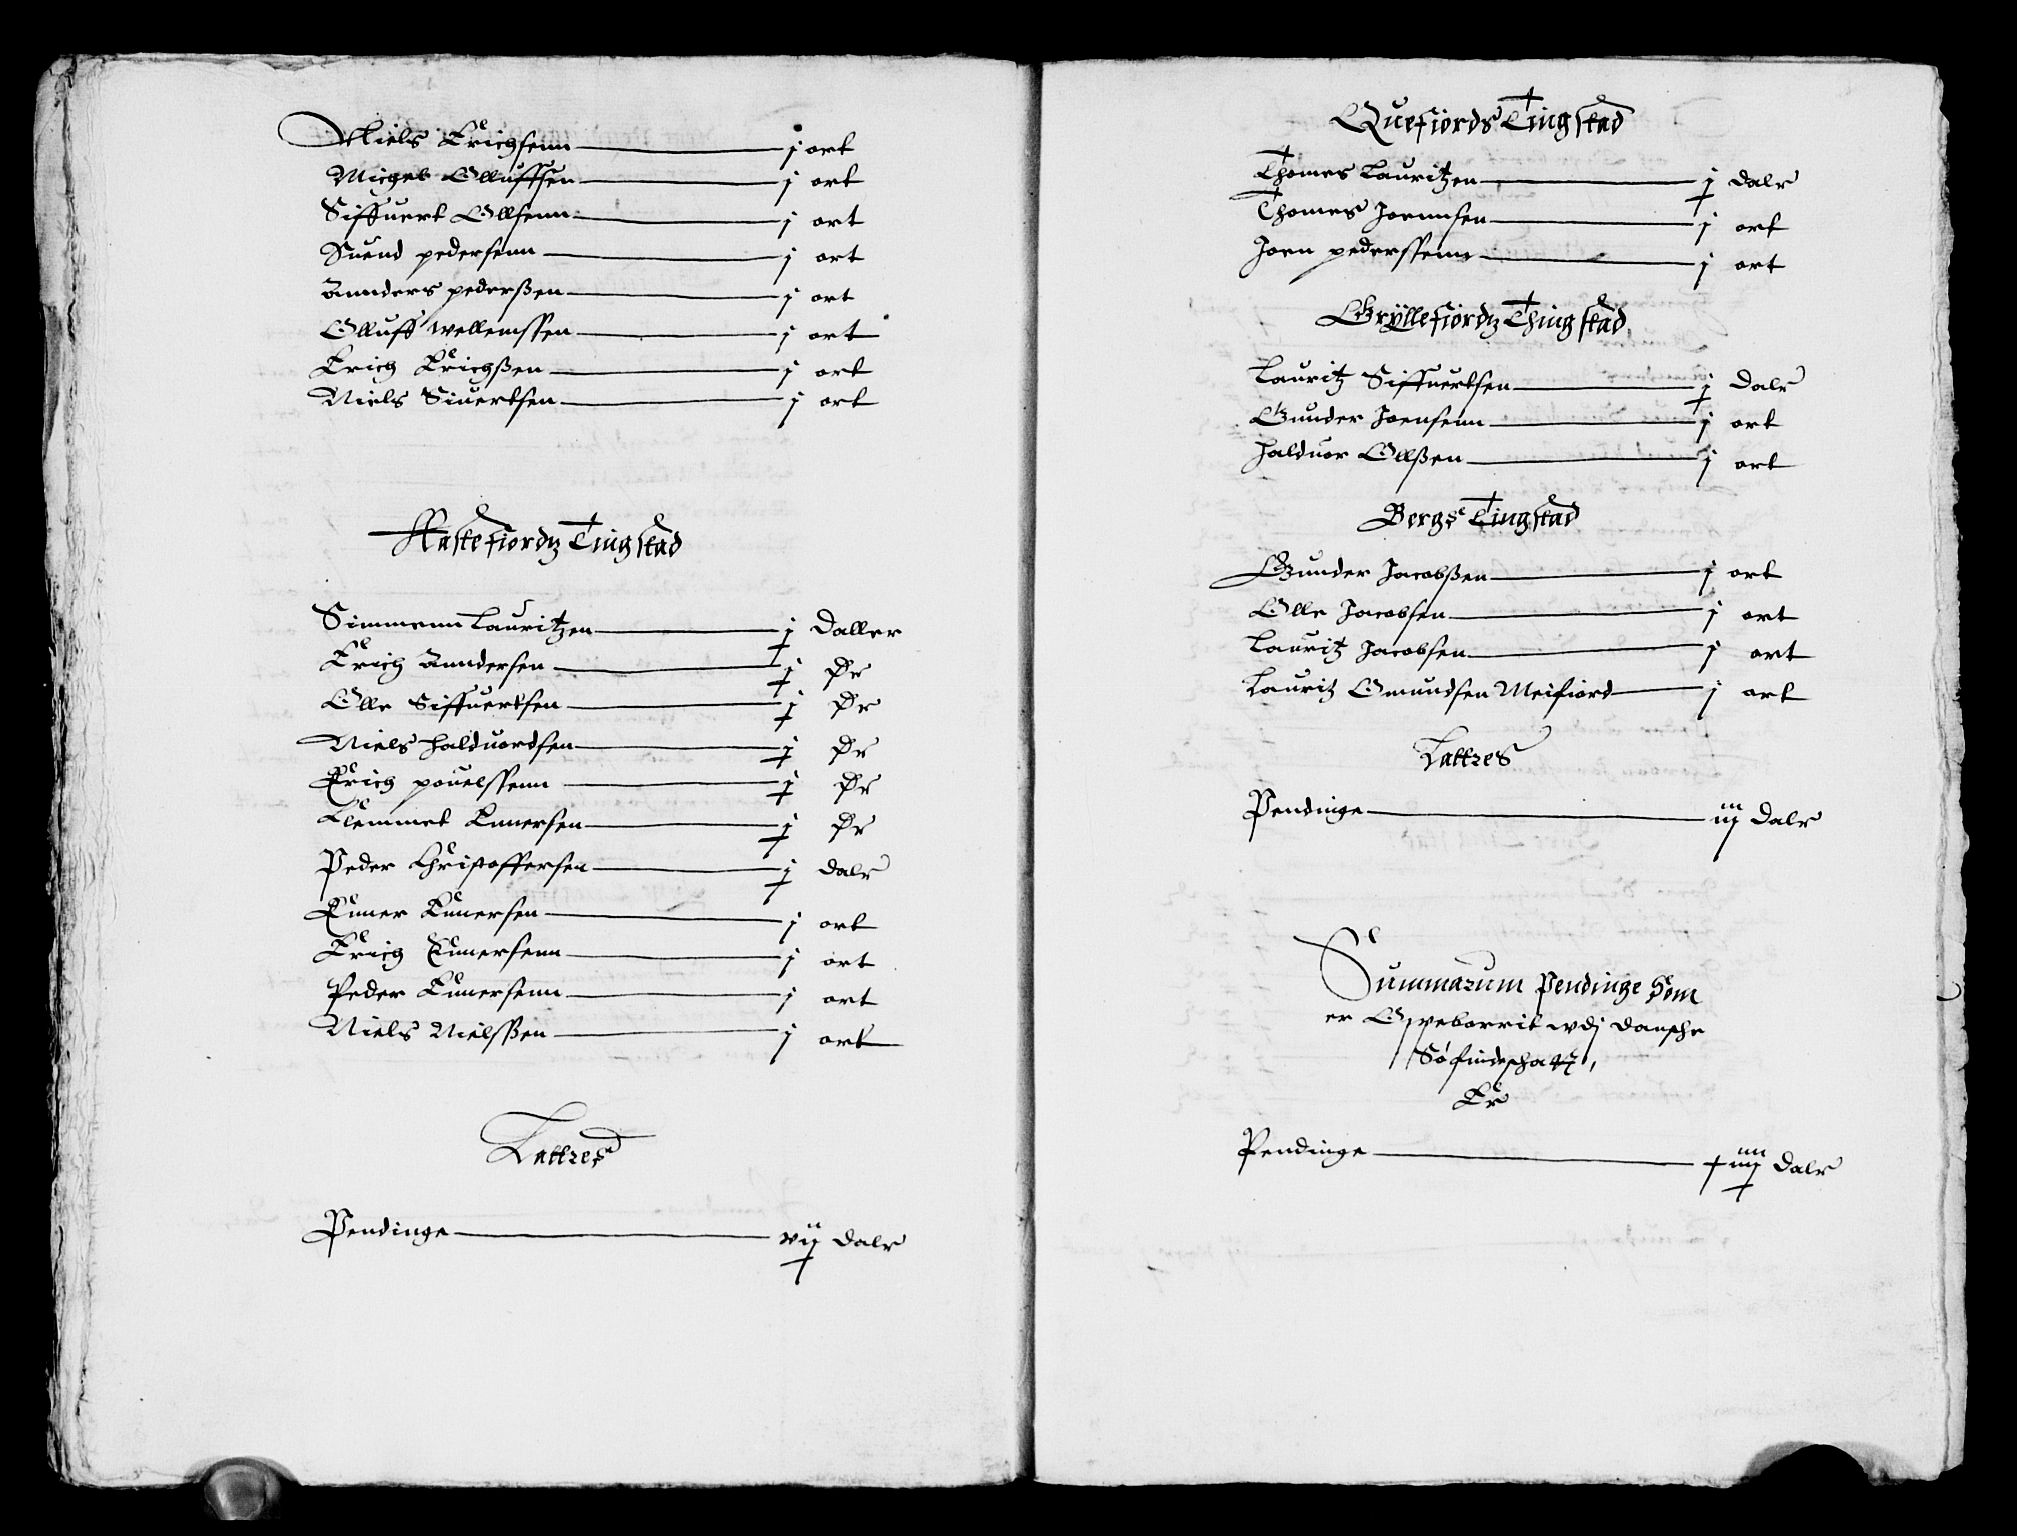 Niels Erichsenn — j ort
Michel Olluffsen — j ort
Siffuert Ollsenn — j ort
Suend pedersenn — j ort
Annders pederßen — j ort
Olluff wellemssen — j ort
Erich Erichßen — j ort
Niels Siuertsen — j ort
Kastefiordz Tingstad
Simmenn Lauritzen — j Daller
Erich Anndersen — j Dr
Olle Siffuertsen — j Dr
Niels halduordsen — j Dr
Erich pouelssenn — j Dr
Clemmet Einersen — j Dr
Peder Christoffersen — j dalr
Einer Einersen — j ort
Erich Einersenn — j ort
Peder Einersenn — j ort
Niels Nielsßen — j ort
Lattres
Pendinge — vij dalr
Quefiords Tingstad
Thomes Lauritzen — j dalr
Thomes Joennsen — j ort
Joen pederssenn — j ort
Grÿllefiordz Thingstad
Lauritz Siffuertsen — j Dalr
Gunder Joensenn — j ort
halduor Ollßen — j ort
Bergs Tingstad
Gunder Jacobßen — j ort
Olle Jacobsen — j ort
Lauritz Jacobsen — j ort
Lauritz Omundsen Meifiord — j ort
Lattres
Pendinge — iij dalr
Summarum Pendinge Som
er Oppeborrit wdj Dansche
Søfindeschatt,
Er
Pendinge — dalr